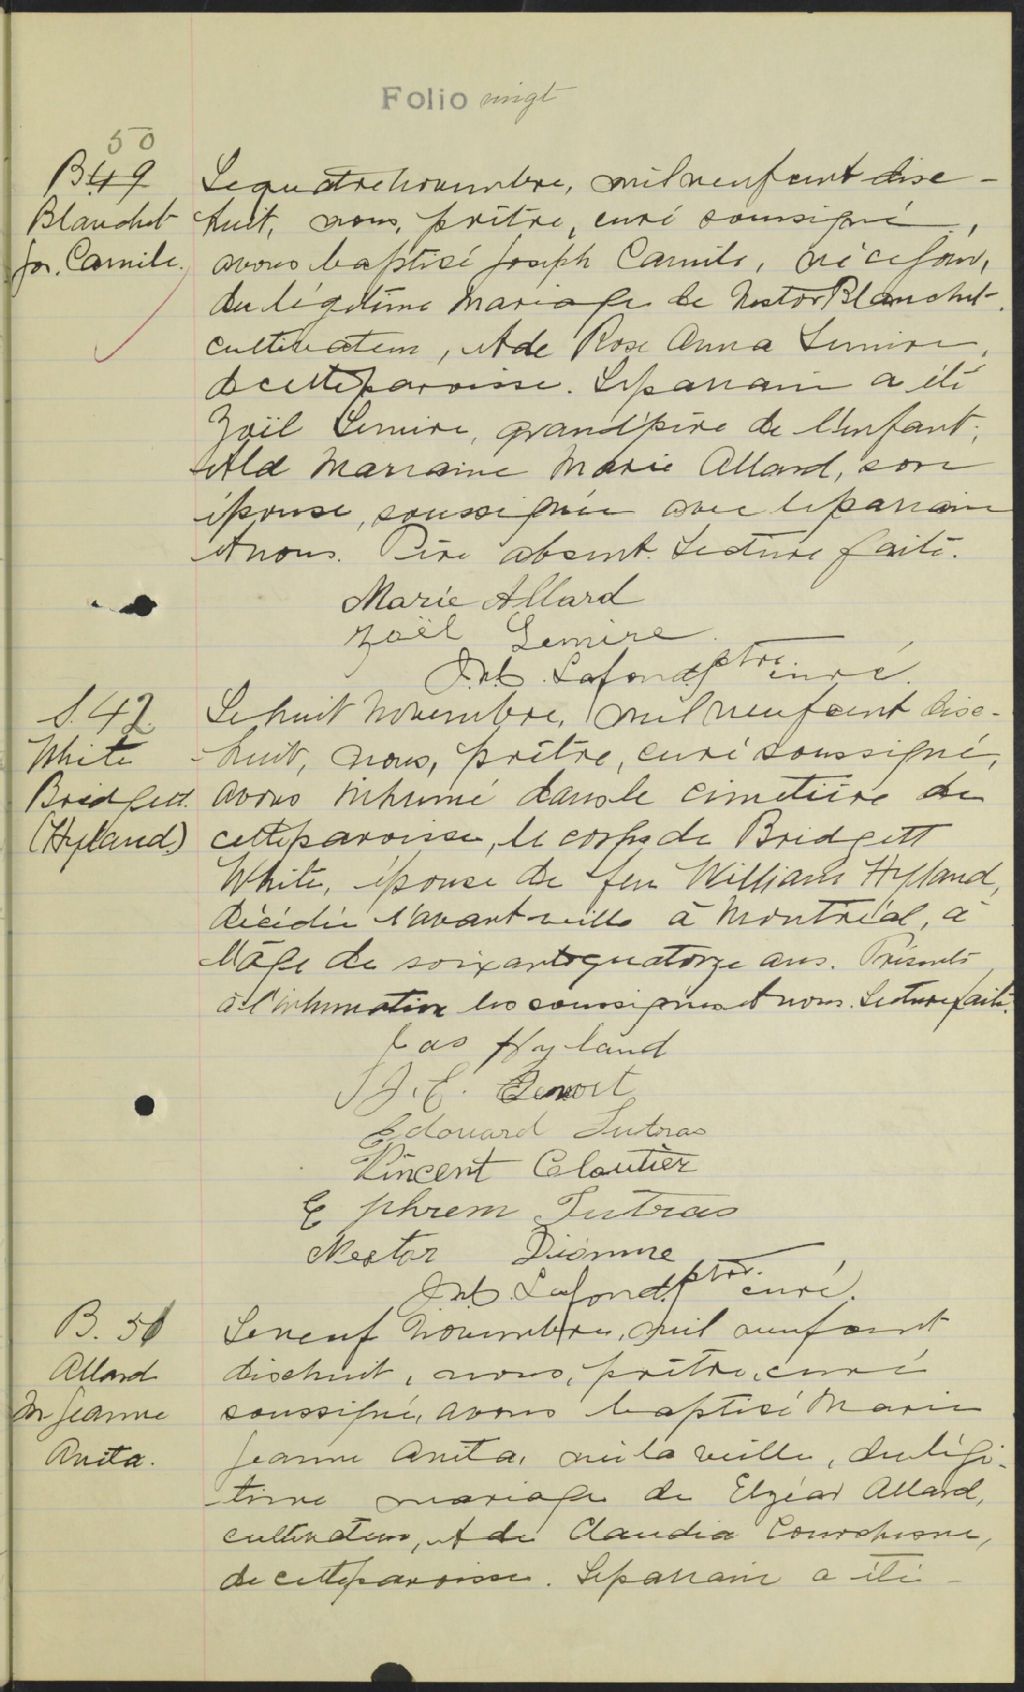 Folio vingt
50
B. 49
Blanchet
Jos. Camile.
Le quatre novembre, mil neuf cent dix-
huit, nous, prêtre, curé soussigné,
avons baptisé Joseph Camile, né ce jour,
du légitime mariage de Nestor Blanchet
cultivateur, et de Rose Anna Lemire,
de cette paroisse. Le parrain a été
Zoël Lemire, grand'père de l'enfant,
et la marraine Marie Allard, son
épouse, soussignée avec le parrain
et nous. Père absent. Lecture faite.
Marie Allard
Zoël Lemire
Lafond ptre. curé.
S. 42.
White
Bridgett
(Hyland)
Le huit novembre, mil neuf cent dix-
huit, nous, prêtre, curé soussigné,
avons inhumé dans le cimetière de
cette paroisse, le corps de Bridgett
White, épouse de feu William Hyland,
décédée l'avant veille à Montréal, à
l'âge de soixante quatorze ans. Présents
à l'inhumation les soussignés et nous. Lecture faite.
Jas Hyland
J. E. Benoit
Edouard Jutras
Vincent Cloutier
Ephrem Jutras
Nestor Dionne
Lafond ptre. curé.
B. 51
Allard
M Jeanne
Anita.
Le neuf novembre, mil neuf cent
dix huit, nous, prêtre, curé
soussigné, avons baptisé Marie
Jeanne Anita, née la veille, du légi-
time mariage de Elzéar Allard,
cultivateur, et de Claudia Courchesne,
de cette paroisse. Le parrain a été